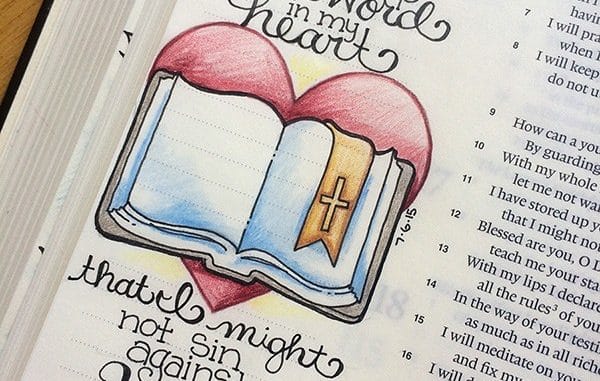 WORD
in my
heart
7-6-15
that I might
not sin
against
7 havin
I will pra
when
8 I will keep
do not u
9 How can a you
By guarding
10 With my whole
let me not wa
11 I have stored up yo
that I might not
12 Blessed are you, O L
teach me your sta
13 With my lips I declare
all the rules³ of you
14 In the way of your testi
as much as in all ric
15 I will meditate on you
and fix my
16 I will d